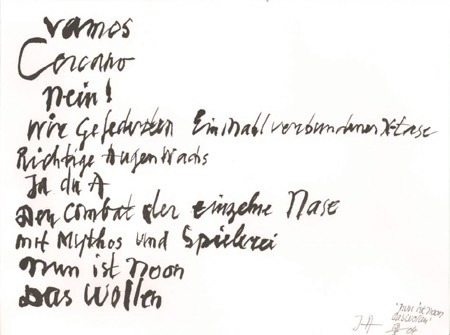 vamos
Cercano
Nein!
wie gefederten Einmahl verbundener X-tase
Richtige Augen Wachs
Ja da A
Den Combat der einzelne Nase
mit Mythos und Spielerei
nun ist Noon
Das Wollen
'nun ist noon
das wollen'
04